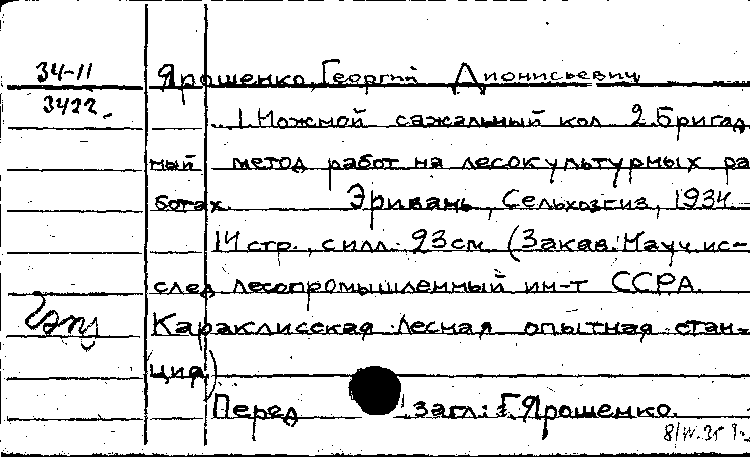 34-11
3422.
Ярошенко, Георгий Дионисьевич
1. Ножной сажальный кол 2. Бригад
ный метод работ на лесокультурных ра
ботах. Эривань, Сельхозгиз, 1934.
14 стр., с илл. 23 см. (Закав. Науч. ис-
след лесопромышленный ин-т ССРА.
Караклисская лесная опытная стан-
ция)
Перед загл.: Г. Ярошенко.
8/IV.35 г.